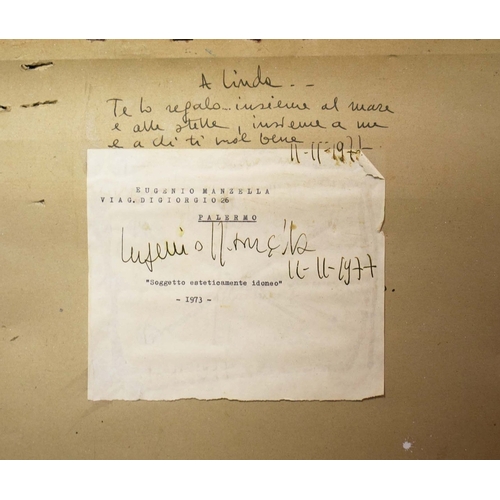 A Linda...
Te lo regalo... insieme al mare
e alle stelle, insieme a me
e a chi ti vuol bene
11-11-1977
EUGENIO MANZELLA
VIA G. DIGIORGIO 26
PALERMO
Eugenio Manzella
11-11-1977
"Soggetto esteticamente idoneo"
- 1973 -